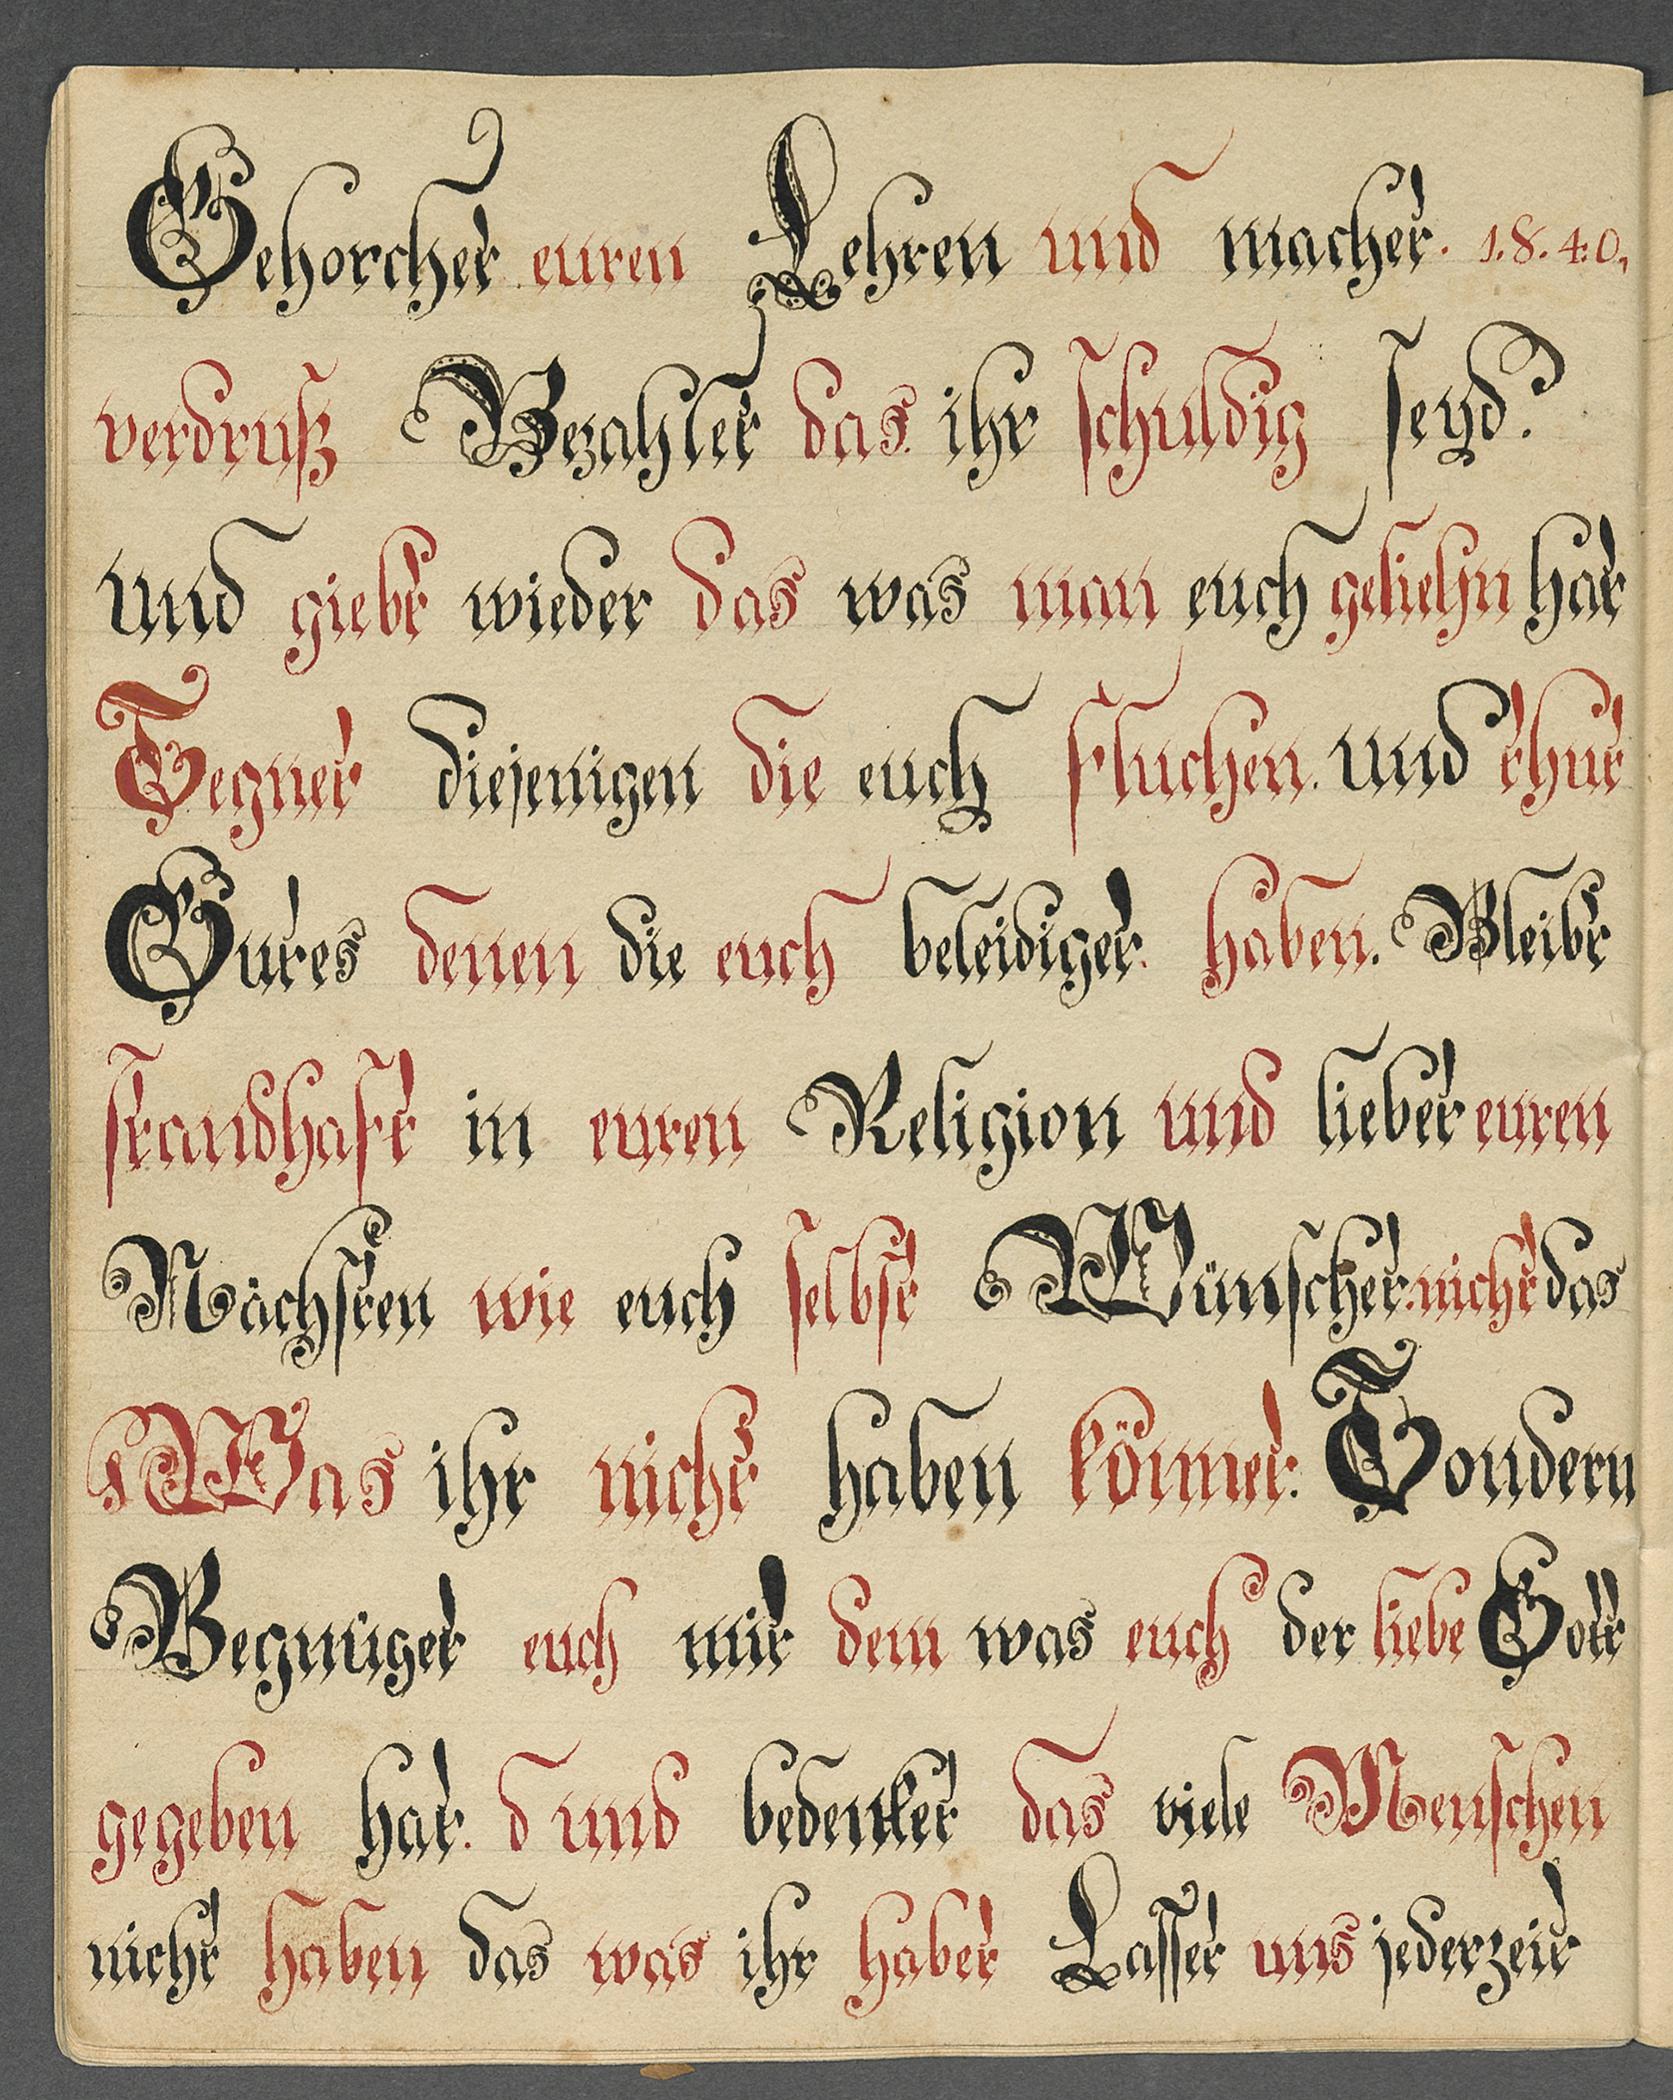 Gehorchet euren Lehren und machet. 1.8.4.0,
verdruß Bezahlet das ihr schuldig seyd.
und giebt wieder das was man euch geliehn hat
Segnet diejenigen die euch fluchen. und thut
Gutes denen die euch beleidiget. haben. Bleibt
standhaft in euren Religion und liebet euren
Nächsten wie euch selbst Wünschet. nicht das
Was ihr nicht haben könnet. Sondern
Begnüget euch mit dem was euch der liebe Gott
gegeben hat. d und bedenket das viele Menschen
nicht haben das was ihr habet Lasset uns jederzeit